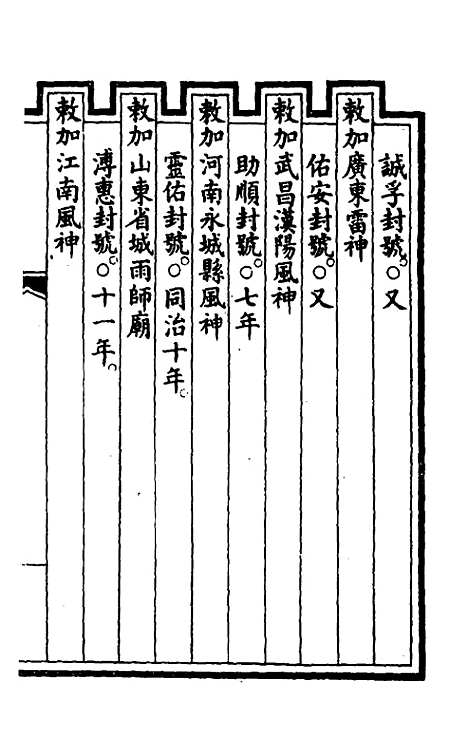 誠孚封號。○又
敕加廣東雷神
佑安封號。○又
敕加武昌漢陽風神
助順封號。○七年
敕加河南永城縣風神
靈佑封號。○同治十年。
敕加山東省城雨師廟
溥惠封號。○十一年。
敕加江南風神